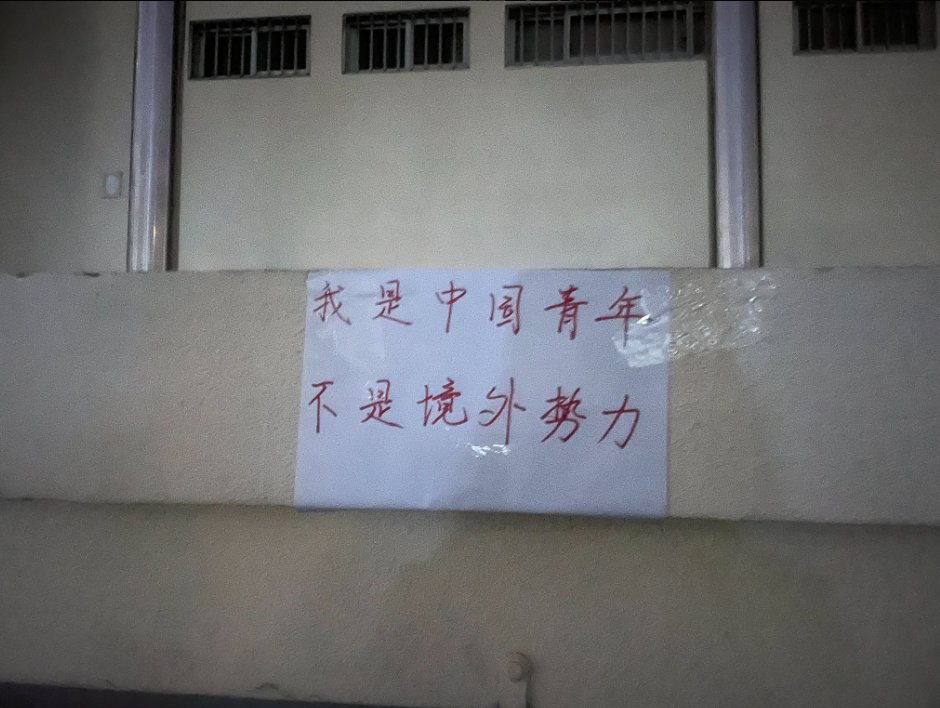 我是中国青年
不是境外势力